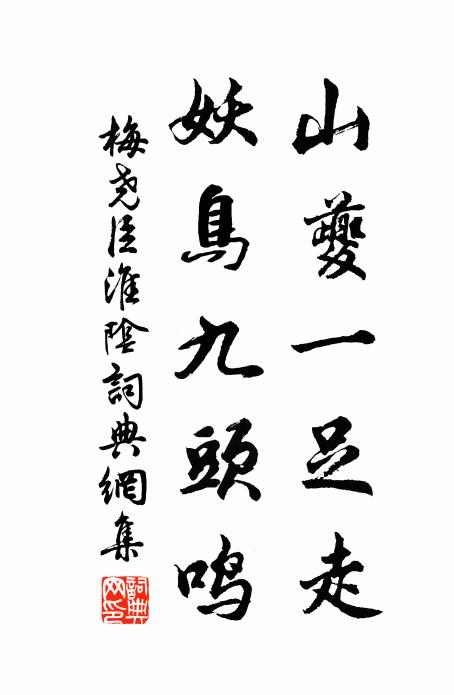 山夔一足走
妖鳥九頭鳴
梅尧臣淮陰詞典網集
詞典
网印